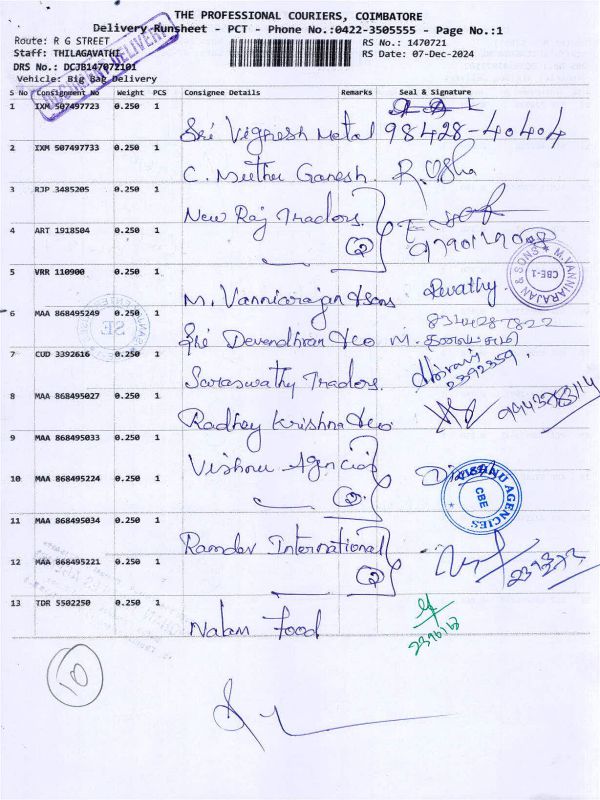 THE PROFESSIONAL COURIERS, COIMBATORE
Delivery Runsheet - PCT - Phone No.:0422-3505555 - Page No.:1
Route: R G STREET
RS No.: 1470721
Staff: THILAGAVATHI
RS Date: 07-Dec-2024
DRS No.: DCJB147072101
Vehicle: Big Bag Delivery
S No Consignment No Weight PCS Consignee Details Remarks Seal & Signature
1 IXM 507497723 0.250 1
Sri Vignesh Metal 98428-40404
2 IXM 507497733 0.250 1
C. Muthu Ganesh R. Usha
3 RJP 3485205 0.250 1
New Raj Traders
4 ART 1918504 0.250 1
2
5 VRR 110900 0.250 1
M. Vanniarajan & Sons Revathy
M. VANNIARAJAN & SONS
CBE-1
6 MAA 868495249 0.250 1
Sri Devendhran & co M.
7 CUD 3392616 0.250 1
Saraswathy Traders. 2392359
8 MAA 868495027 0.250 1
Radhey Krishna & co
9 MAA 868495033 0.250 1
Vishnu Agencies
10 MAA 868495224 0.250 1
2
VISHNU AGENCIES
CBE
11 MAA 868495034 0.250 1
Ramdev International
12 MAA 868495221 0.250 1
2
13 TDR 5502250 0.250 1
Nalam Food
10